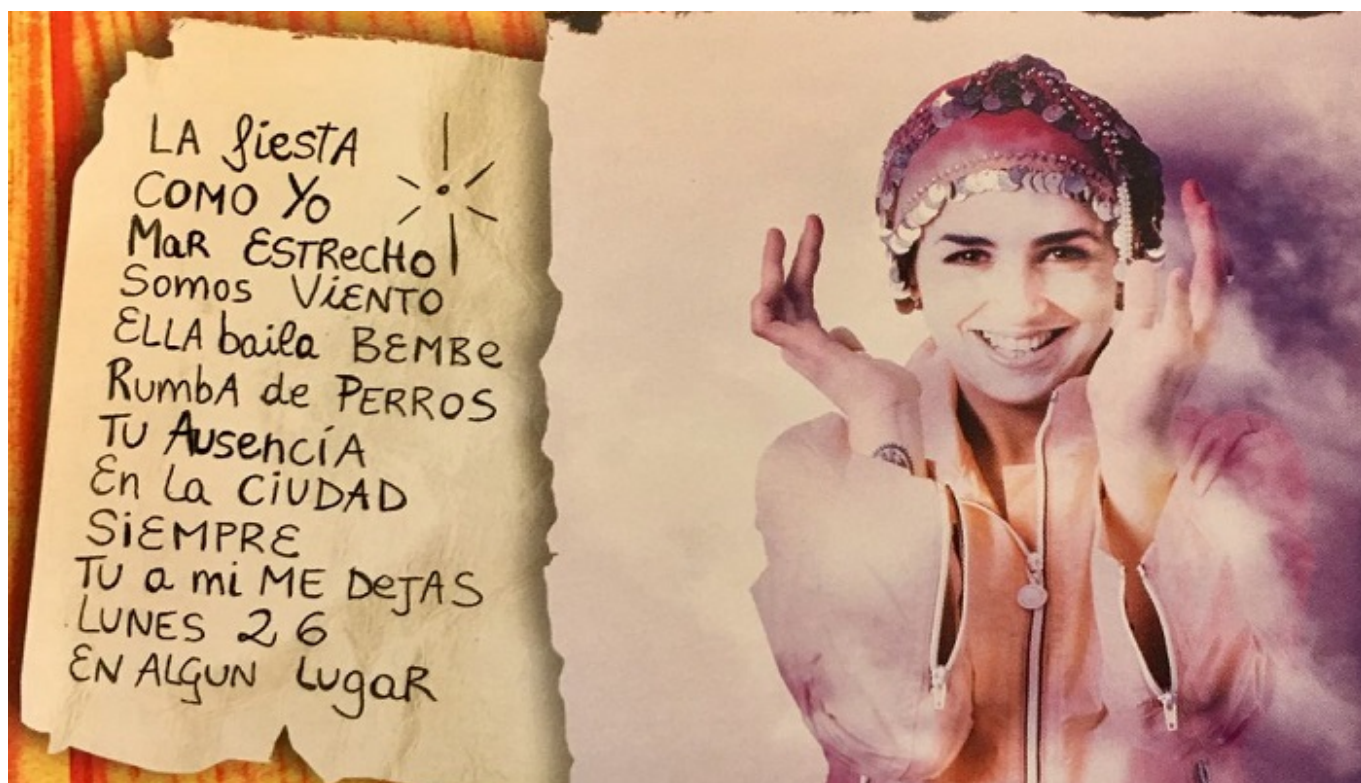 LA fiestA
COMO YO
MaR ESTRecHo
Somos ViENTO
ELLA baila BEMBe
RumbA de PERROS
TU AusenciA
En La CiUDAD
SiEMPRE
TU a mi ME DeJAS
LUNES 26
EN ALGUN LugaR